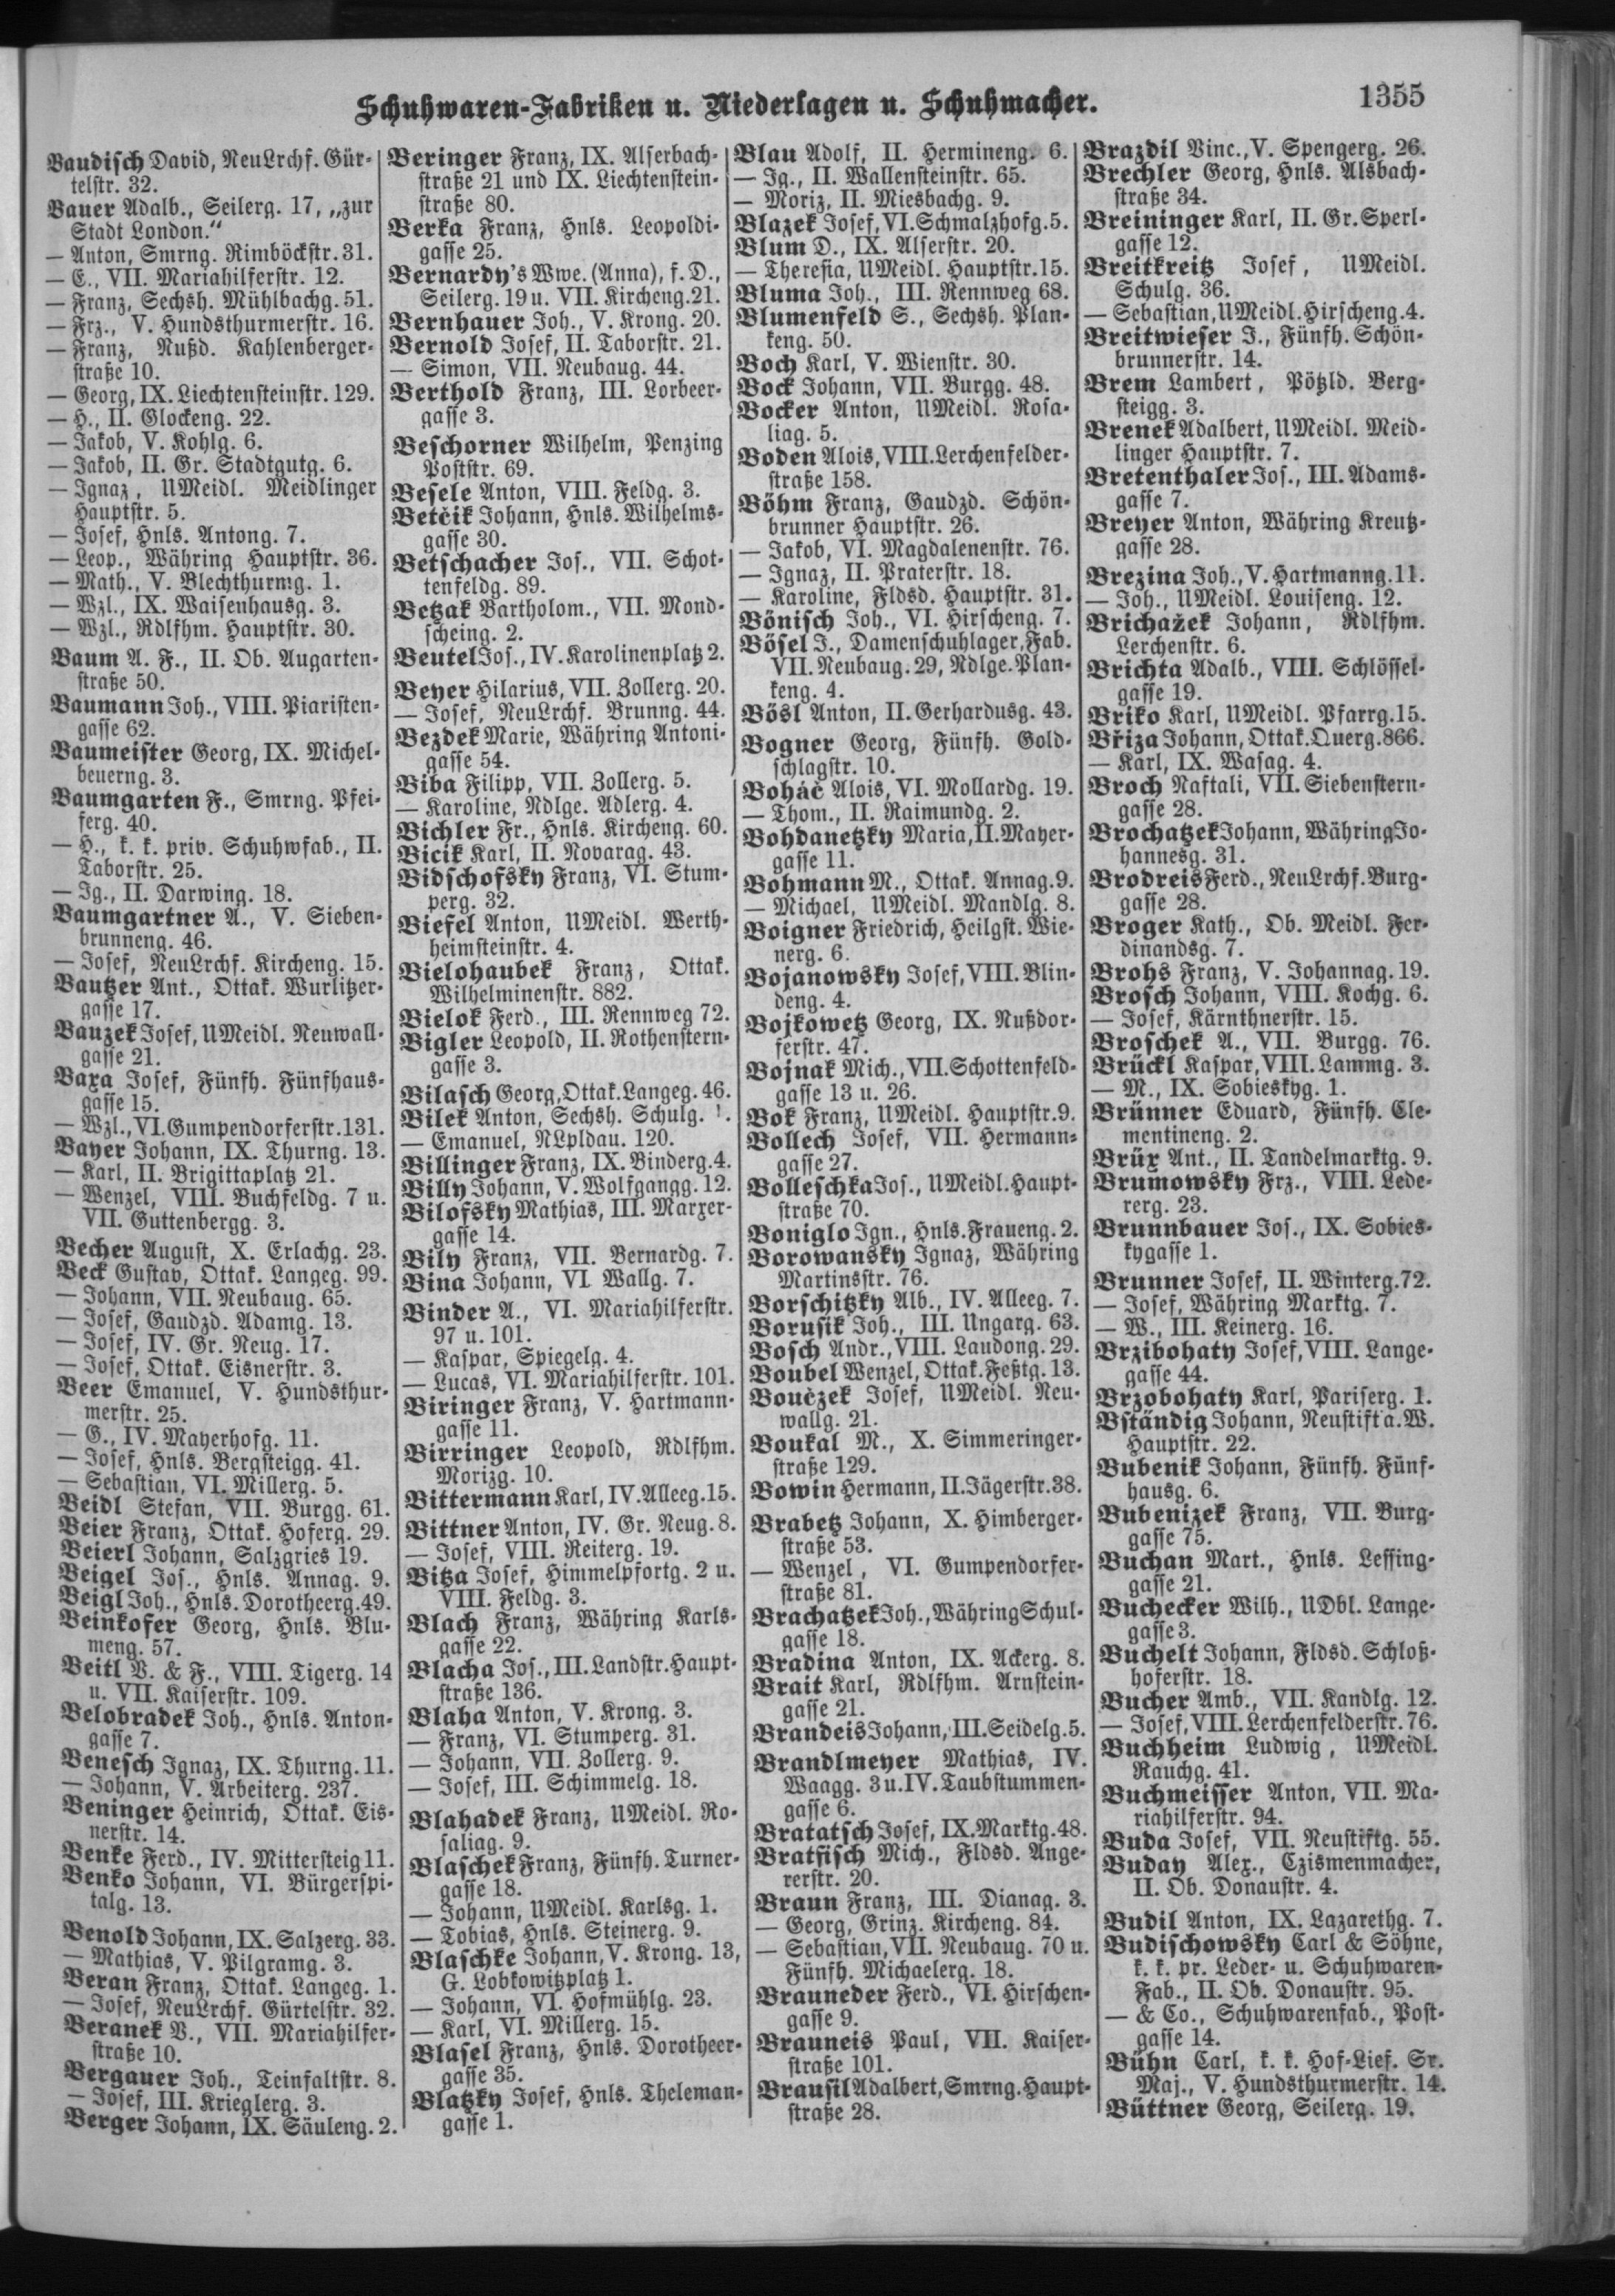 Schuhwaren-Fabriken u. Niederlagen u. Schuhmacher.
1355
Baudisch David, NeuLrchf. Gür-
telstr. 32.
Bauer Adalb., Seilerg. 17, „zur
Stadt London.“
— Anton, Smrng. Rimböckstr. 31.
— E., VII. Mariahilferstr. 12.
— Franz, Sechsh. Mühlbachg. 51.
— Frz., V. Hundsthurmerstr. 16.
— Franz, Nußd. Kahlenberger-
straße 10.
— Georg, IX. Liechtensteinstr. 129.
— H., II. Glockeng. 22.
— Jakob, V. Kohlg. 6.
— Jakob, II. Gr. Stadtgutg. 6.
— Ignaz, UMeidl. Meidlinger
Hauptstr. 5.
— Josef, Hnls. Antong. 7.
— Leop., Währing Hauptstr. 36.
— Math., V. Blechthurmg. 1.
— Wzl., IX. Waisenhausg. 3.
— Wzl., Rdlfhm. Hauptstr. 30.
Baum A. F., II. Ob. Augarten-
straße 50.
Baumann Joh., VIII. Piaristen-
gasse 62.
Baumeister Georg, IX. Michel-
beuerng. 3.
Baumgarten F., Smrng. Pfei-
ferg. 40.
— H., k. k. priv. Schuhwfab., II.
Taborstr. 25.
— Ig., II. Darwing. 18.
Baumgartner A., V. Sieben-
brunneng. 46.
— Josef, NeuLrchf. Kircheng. 15.
Bautzer Ant., Ottak. Wurlitzer-
gasse 17.
Bauzek Josef, UMeidl. Neuwall-
gasse 21.
Baxa Josef, Fünfh. Fünfhaus-
gasse 15.
— Wzl., VI. Gumpendorferstr. 131.
Bayer Johann, IX. Thurng. 13.
— Karl, II. Brigittaplatz 21.
— Wenzel, VIII. Buchfeldg. 7 u.
VII. Guttenbergg. 3.
Becher August, X. Erlachg. 23.
Beck Gustav, Ottak. Langeg. 99.
— Johann, VII. Neubaug. 65.
— Josef, Gaudzd. Adamg. 13.
— Josef, IV. Gr. Neug. 17.
— Josef, Ottak. Eisnerstr. 3.
Beer Emanuel, V. Hundsthur-
merstr. 25.
— G., IV. Mayerhofg. 11.
— Josef, Hnls. Bergsteigg. 41.
— Sebastian, VI. Millerg. 5.
Beidl Stefan, VII. Burgg. 61.
Beier Franz, Ottak. Hoferg. 29.
Beierl Johann, Salzgries 19.
Beigel Jos., Hnls. Annag. 9.
Beigl Joh., Hnls. Dorotheerg. 49.
Beinkofer Georg, Hnls. Blu-
meng. 57.
Beitl V. & F., VIII. Tigerg. 14
u. VII. Kaiserstr. 109.
Belobradek Joh., Hnls. Anton-
gasse 7.
Benesch Ignaz, IX. Thurng. 11.
— Johann, V. Arbeiterg. 237.
Beninger Heinrich, Ottak. Eis-
nerstr. 14.
Benke Ferd., IV. Mittersteig 11.
Benko Johann, VI. Bürgerspi-
talg. 13.
Benold Johann, IX. Salzerg. 33.
— Mathias, V. Pilgramg. 3.
Beran Franz, Ottak. Langeg. 1.
— Josef, NeuLrchf. Gürtelstr. 32.
Beranek V., VII. Mariahilfer-
straße 10.
Bergauer Joh., Teinfaltstr. 8.
— Josef, III. Krieglerg. 3.
Berger Johann, IX. Säuleng. 2.
Beringer Franz, IX. Alserbach-
straße 21 und IX. Liechtenstein-
straße 80.
Berka Franz, Hnls. Leopoldi-
gasse 25.
Bernardy's Wwe. (Anna), f. D.,
Seilerg. 19 u. VII. Kircheng. 21.
Bernhauer Joh., V. Krong. 20.
Bernold Josef, II. Taborstr. 21.
— Simon, VII. Neubaug. 44.
Berthold Franz, III. Lorbeer-
gasse 3.
Beschorner Wilhelm, Penzing
Poststr. 69.
Besele Anton, VIII. Feldg. 3.
Betčik Johann, Hnls. Wilhelms-
gasse 30.
Betschacher Jos., VII. Schot-
tenfeldg. 89.
Betzak Bartholom., VII. Mond-
scheing. 2.
Beutel Jos., IV. Karolinenplatz 2.
Beyer Hilarius, VII. Zollerg. 20.
— Josef, NeuLrchf. Brunng. 44.
Bezdek Marie, Währing Antoni-
gasse 54.
Biba Filipp, VII. Zollerg. 5.
— Karoline, Ndlge. Adlerg. 4.
Bichler Fr., Hnls. Kircheng. 60.
Bicik Karl, II. Novarag. 43.
Bidschofsky Franz, VI. Stum-
perg. 32.
Biefel Anton, UMeidl. Werth-
heimsteinstr. 4.
Bielohaubek Franz, Ottak.
Wilhelminenstr. 882.
Bielok Ferd., III. Rennweg 72.
Bigler Leopold, II. Rothenstern-
gasse 3.
Bilasch Georg, Ottak. Langeg. 46.
Bilek Anton, Sechsh. Schulg.
— Emanuel, NLpldau. 120.
Billinger Franz, IX. Binderg. 4.
Billy Johann, V. Wolfgangg. 12.
Bilofsky Mathias, III. Marxer-
gasse 14.
Bily Franz, VII. Bernardg. 7.
Bina Johann, VI Wallg. 7.
Binder A., VI. Mariahilferstr.
97 u. 101.
— Kaspar, Spiegelg. 4.
— Lucas, VI. Mariahilferstr. 101.
Biringer Franz, V. Hartmann-
gasse 11.
Birringer Leopold, Rdlfhm.
Morizg. 10.
Bittermann Karl, IV. Alleeg. 15.
Bittner Anton, IV. Gr. Neug. 8.
— Josef, VIII. Reiterg. 19.
Bitza Josef, Himmelpfortg. 2 u.
VIII. Feldg. 3.
Blach Franz, Währing Karls-
gasse 22.
Blacha Jos., III. Landstr. Haupt-
straße 136.
Blaha Anton, V. Krong. 3.
— Franz, VI. Stumperg. 31.
— Johann, VII. Zollerg. 9.
— Josef, III. Schimmelg. 18.
Blahadek Franz, UMeidl. Ro-
saliag. 9.
Blaschek Franz, Fünfh. Turner-
gasse 18.
— Johann, UMeidl. Karlsg. 1.
— Tobias, Hnls. Steinerg. 9.
Blaschke Johann, V. Krong. 13,
G. Lobkowitzplatz 1.
— Johann, VI. Hofmühlg. 23.
— Karl, VI. Millerg. 15.
Blasel Franz, Hnls. Dorotheer-
gasse 35.
Blatzky Josef, Hnls. Theleman-
gasse 1.
Blau Adolf, II. Hermineng. 6.
— Ig., II. Wallensteinstr. 65.
— Moriz, II. Miesbachg. 9.
Blazek Josef, VI. Schmalzhofg. 5.
Blum D., IX. Alserstr. 20.
— Theresia, UMeidl. Hauptstr. 15.
Bluma Joh., III. Rennweg 68.
Blumenfeld S., Sechsh. Plan-
keng. 50.
Boch Karl, V. Wienstr. 30.
Bock Johann, VII. Burgg. 48.
Bocker Anton, UMeidl. Rosa-
liag. 5.
Boden Alois, VIII. Lerchenfelder-
straße 158.
Böhm Franz, Gaudzd. Schön-
brunner Hauptstr. 26.
— Jakob, VI. Magdalenenstr. 76.
— Ignaz, II. Praterstr. 18.
— Karoline, Fldsd. Hauptstr. 31.
Bönisch Joh., VI. Hirscheng. 7.
Bösel J., Damenschuhlager, Fab.
VII. Neubaug. 29, Ndlge. Plan-
keng. 4.
Bösl Anton, II. Gerhardusg. 43.
Bogner Georg, Fünfh. Gold-
schlagstr. 10.
Boháč Alois, VI. Mollardg. 19.
— Thom., II. Raimundg. 2.
Bohdanetzky Maria, II. Mayer-
gasse 11.
Bohmann M., Ottak. Annag. 9.
— Michael, UMeidl. Mandlg. 8.
Boigner Friedrich, Heilgst. Wie-
nerg. 6.
Bojanowsky Josef, VIII. Blin-
deng. 4.
Bojkowetz Georg, IX. Nußdor-
ferstr. 47.
Bojnak Mich., VII. Schottenfeld-
gasse 13 u. 26.
Bok Franz, UMeidl. Hauptstr. 9.
Bollech Josef, VII. Hermann-
gasse 27.
Bolleschka Jos., UMeidl. Haupt-
straße 70.
Boniglo Ign., Hnls. Fraueng. 2.
Borowansky Ignaz, Währing
Martinsstr. 76.
Borschitzky Alb., IV. Alleeg. 7.
Borusik Joh., III. Ungarg. 63.
Bosch Andr., VIII. Laudong. 29.
Boubel Wenzel, Ottak. Feßtg. 13.
Boučzek Josef, UMeidl. Neu-
wallg. 21.
Boukal M., X. Simmeringer-
straße 129.
Bowin Hermann, II. Jägerstr. 38.
Brabetz Johann, X. Himberger-
straße 53.
— Wenzel, VI. Gumpendorfer-
straße 81.
Brachatzek Joh., Währing Schul-
gasse 18.
Bradina Anton, IX. Ackerg. 8.
Brait Karl, Rdlfhm. Arnstein-
gasse 21.
Brandeis Johann, III. Seidelg. 5.
Brandlmeyer Mathias, IV.
Waagg. 3 u. IV. Taubstummen-
gasse 6.
Bratatsch Josef, IX. Marktg. 48.
Bratfisch Mich., Fldsd. Ange-
rerstr. 20.
Braun Franz, III. Dianag. 3.
— Georg, Grinz. Kircheng. 84.
— Sebastian, VII. Neubaug. 70 u.
Fünfh. Michaelerg. 18.
Brauneder Ferd., VI. Hirschen-
gasse 9.
Brauneis Paul, VII. Kaiser-
straße 101.
Brausil Adalbert, Smrng. Haupt-
straße 28.
Brazdil Vinc., V. Spengerg. 26.
Brechler Georg, Hnls. Alsbach-
straße 34.
Breininger Karl, II. Gr. Sperl-
gasse 12.
Breitkreitz Josef, UMeidl.
Schulg. 36.
— Sebastian, UMeidl. Hirscheng. 4.
Breitwieser J., Fünfh. Schön-
brunnerstr. 14.
Brem Lambert, Pötzld. Berg-
steigg. 3.
Brenek Adalbert, UMeidl. Meid-
linger Hauptstr. 7.
Bretenthaler Jos., III. Adams-
gasse 7.
Breyer Anton, Währing Kreutz-
gasse 28.
Brezina Joh., V. Hartmanng. 11.
— Joh., UMeidl. Louiseng. 12.
Brichažek Johann, Rdlfhm.
Lerchenstr. 6.
Brichta Adalb., VIII. Schlössel-
gasse 19.
Briko Karl, UMeidl. Pfarrg. 15.
Břiza Johann, Ottak. Querg. 866.
— Karl, IX. Wasag. 4.
Broch Naftali, VII. Siebenstern-
gasse 28.
Brochatzek Johann, Währing Jo-
hannesg. 31.
Brodreis Ferd., NeuLrchf. Burg-
gasse 28.
Broger Kath., Ob. Meidl. Fer-
dinandsg. 7.
Brohs Franz, V. Johannag. 19.
Brosch Johann, VIII. Kochg. 6.
— Josef, Kärnthnerstr. 15.
Broschek A., VII. Burgg. 76.
Brückl Kaspar, VIII. Lammg. 3.
— M., IX. Sobieskyg. 1.
Brünner Eduard, Fünfh. Cle-
mentineng. 2.
Brüx Ant., II. Tandelmarktg. 9.
Brumowsky Frz., VIII. Lede-
rerg. 23.
Brunnbauer Jos., IX. Sobies-
kygasse 1.
Brunner Josef, II. Winterg. 72.
— Josef, Währing Marktg. 7.
— W., III. Keinerg. 16.
Brzibohaty Josef, VIII. Lange-
gasse 44.
Brzobohaty Karl, Pariserg. 1.
Bständig Johann, Neustift a. W.
Hauptstr. 22.
Bubenik Johann, Fünfh. Fünf-
hausg. 6.
Bubenizek Franz, VII. Burg-
gasse 75.
Buchan Mart., Hnls. Lessing-
gasse 21.
Buchecker Wilh., UDbl. Lange-
gasse 3.
Buchelt Johann, Fldsd. Schloß-
hoferstr. 18.
Bucher Amb., VII. Kandlg. 12.
— Josef, VIII. Lerchenfelderstr. 76.
Buchheim Ludwig, UMeidl.
Rauchg. 41.
Buchmeisser Anton, VII. Ma-
riahilferstr. 94.
Buda Josef, VII. Neustiftg. 55.
Buday Alex., Czismenmacher,
II. Ob. Donaustr. 4.
Budil Anton, IX. Lazarethg. 7.
Budischowsky Carl & Söhne,
k. k. pr. Leder- u. Schuhwaren-
Fab., II. Ob. Donaustr. 95.
— & Co., Schuhwarenfab., Post-
gasse 14.
Bühn Carl, k. k. Hof-Lief. Sr.
Maj., V. Hundsthurmerstr. 14.
Büttner Georg, Seilerg. 19.